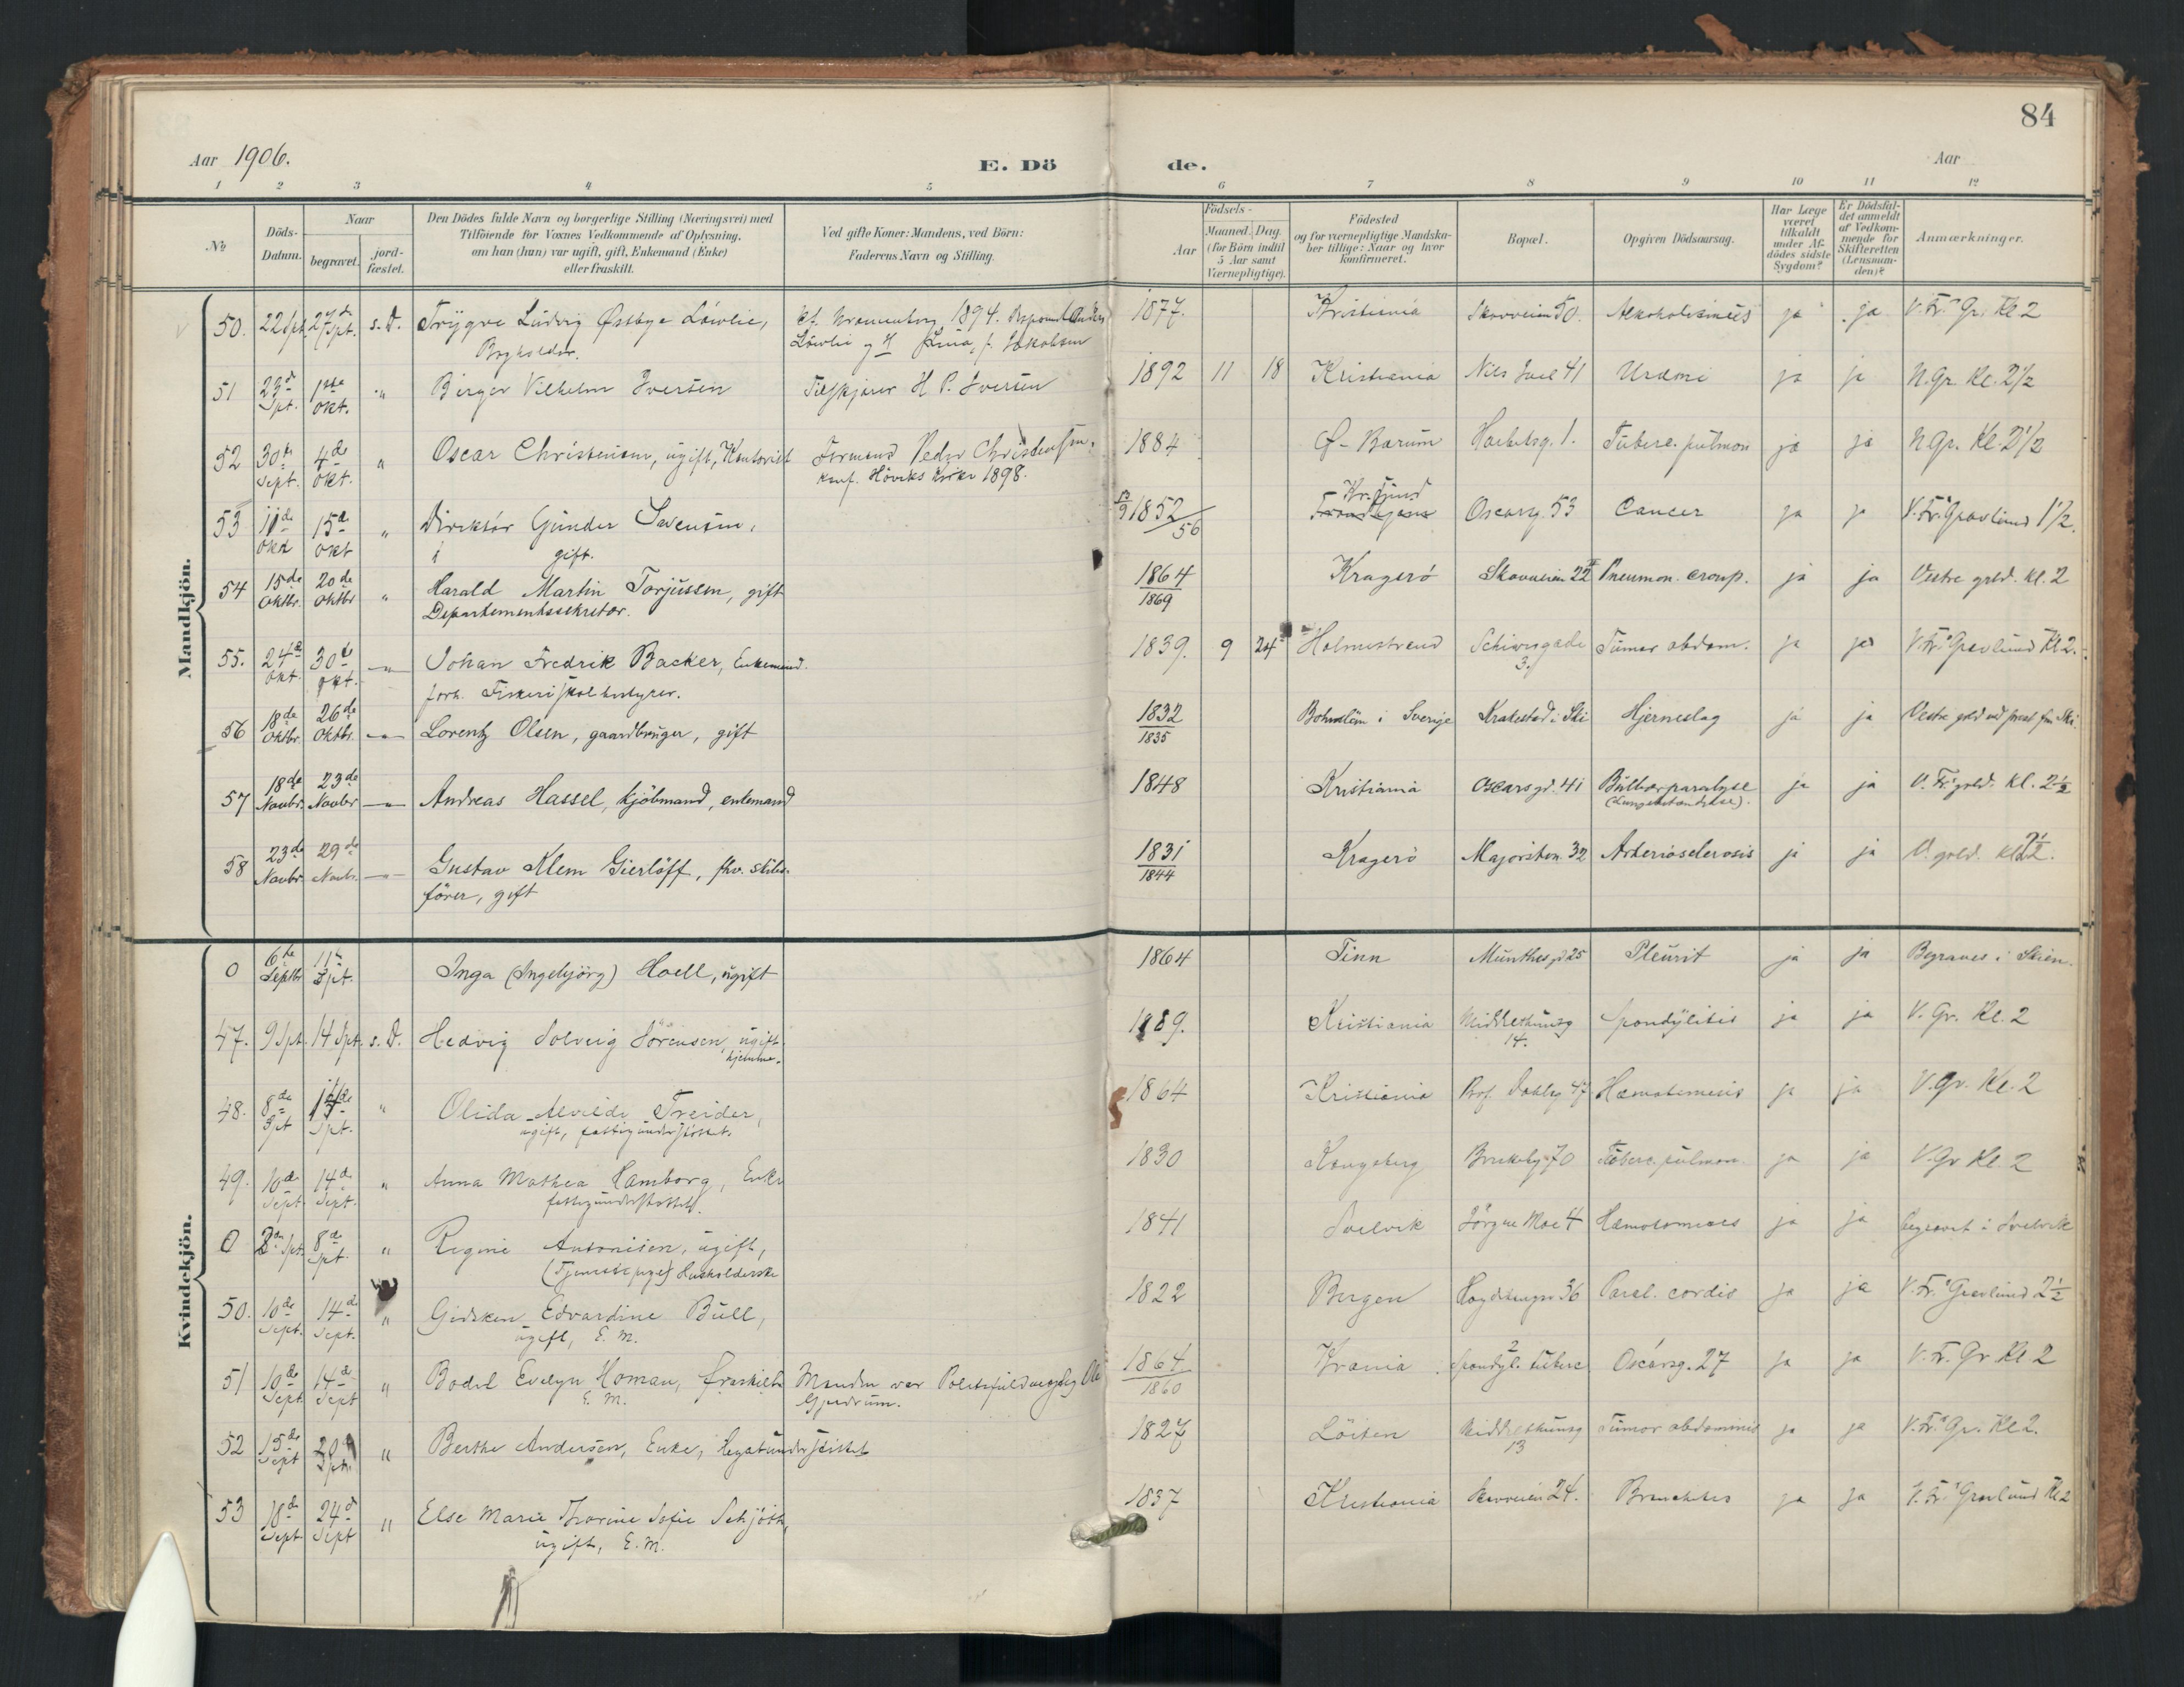 84
Aar 1906.
E. Dö de.
Aar
1 2 3 4 5 6 7 8 9 10 11 12
No
Döds-
Datum.
Naar
begravet.
jord-
fæstet.
Den Dödes fulde Navn og borgerlige Stilling (Næringsvei) med
Tilföiende for Voxnes Vedkommende af Oplysning.
om han (hun) var ugift, gift, Enkemand (Enke)
eller fraskilt.
Ved gifte Koner: Mandens, ved Börn:
Faderens Navn og Stilling.
Födsels-
Aar
Maaned. Dag.
(for Börn indtil
5 Aar samt
Værnepligtige).
Födested
og for værnepligtige Mandska-
ber tillige: Naar og hvor
konfirmeret.
Bopæl.
Opgiven Dödsaarsag.
Har Læge
været
tilkaldt
under Af-
dödes sidste
Sygdom?
Er Dödsfal-
det anmeldt
af Vedkom-
mende for
Skifteretten
(Lensman-
den)?
Anmærkninger.
Mandkjön.
50. 22 Spt. 27de Spt. s. D. Trygve Ludvig Østbye Löwlie, 1894. 1877. Kristiania Skovveien 50. Alkoholismus ja ja V. Fr. Gr. Kl 2
Bogholder. Löwlie og H f. Jakobsen
51 23d Spt. 1ste Okt. " Birger Vilhelm Iversen H P. Iversen 1892 11 18 Kristiania Nils Juel 41 Urämi ja ja N. Gr. Kl. 2½
52 30te Sept. 4de Okt. " Oscar Christensen, ugift, Kontorist Formand Peder Christensen. 1884 Ø-Bærum 1. Tuberc. pulmon ja ja N Gr. Kl. 2½
Konf. Höviks Kirke 1898.
53 11de Okt 15d Okt " Direktör Gunder Svensen, 1852/56 Kr.sund Oscarsg. 53 Cancer ja ja V. Fr. Gravlund 1½.
gift. Trondhjem
54 15de Oktbr. 20de Oktbr " Harald Martin Torjussen, gift 1864 Kragerö Skovveien 22 Pneumon. croup. ja ja Vestre grld. kl. 2
Departementssekretær. 1869
55. 24d Okt. 30d Okt. —"— Johan Fredrik Backer, Enkemand. 1839. 9 24 Holmestrand Schivesgade 3. Tumor abdom. ja ja V. Fr. Gravlund Kl 2.
forh. Fiskeriskolbestyrer.
56 18de Oktbr. 26de Oktbr. —"— Lorentz Olsen, gaardbruger, gift 1832 Bohuslän i Sverige Krakestad i Ski Hjerneslag ja ja Vestre grld ved prest fra Ski.
1835
57 18de Novbr. 23de Novbr —"— Andreas Hassel, kjöbmand, enkemand 1848 Kristiania Oscars gd. 41 Bulbærparalyse ja ja V. Fr. grld. kl. 2½
(Lungebetændelse).
58 23de Novbr. 29de Novbr. —"— Gustav Klem Gierlöff, fhv. skibs- 1831 Kragerö Majorstvn. 32 Arteriosclerosis ja ja V. grld. kl 2½.
förer, gift 1844
Kvindekjön.
0 6te Septbr 11te Spt. Inga (Ingebjörg) Hoell, ugift 1864 Tinn Munthes gd 25 Pleurit ja ja Begraves i Skien.
47. 9 Spt. 14 Spt. s. D. Hedvig Solveig Sörensen, ugift 1889. Kristiania Middelthunsg 14. Spondylitis ja ja V. Gr. Kl. 2
hjemme.
48. 8de Spt 14de Spt. " Olida Alvilde Treider, 1864 Kristiania Prof. Dahlsg 47 Hæmatemesis ja ja V. Gr. Kl. 2
ugift, fattigunderstöttet.
49. 10de Sept. 14de Sept. " Anna Mathea Hamborg, Enke 1830 Kongsberg Briskebyv 70 Tuberc. pulmon. ja ja V. Gr Kl. 2
fattigunderstöttet.
0 Spt. 8de Spt. " Regine Antonisen, ugift, 1841 Svelvik Jörgen Moe 4 Hæmatemesis ja ja begravet i Svelvik
(Tjenestepige) Husholderske
50. 10de Sept. 14de Sept. " Gidsken Edvardine Bull, 1822 Bergen 36 Paral. cordis ja ja V. Fr. Gravlund 2½
ugift, E. M.
51 10de Sept. 14de Sept " Bodil Evelyn Homan, fraskilt Manden var Politifuldmægtig Ole 1864 Krania Spondyl. tuberc Oscarsg. 27 ja ja V. Fr. Gr Kl 2
E. M. Gjerdrum. 1860
52 15de Sept 20d Spt. " Berthe Andersen, Enke, Legatunderstöttet 1827 Löiten Middelthunsg 13 Tumor abdominis ja ja V. Fr. Gr. Kl 2.
53 18de Sept. 24d Sept " Else Marie Thorine Sofie Schjöth, 1837 Kristiania Skovveien 24. Bronchitis ja ja V. Fr. Gravlund Kl 2
ugift, E. M.